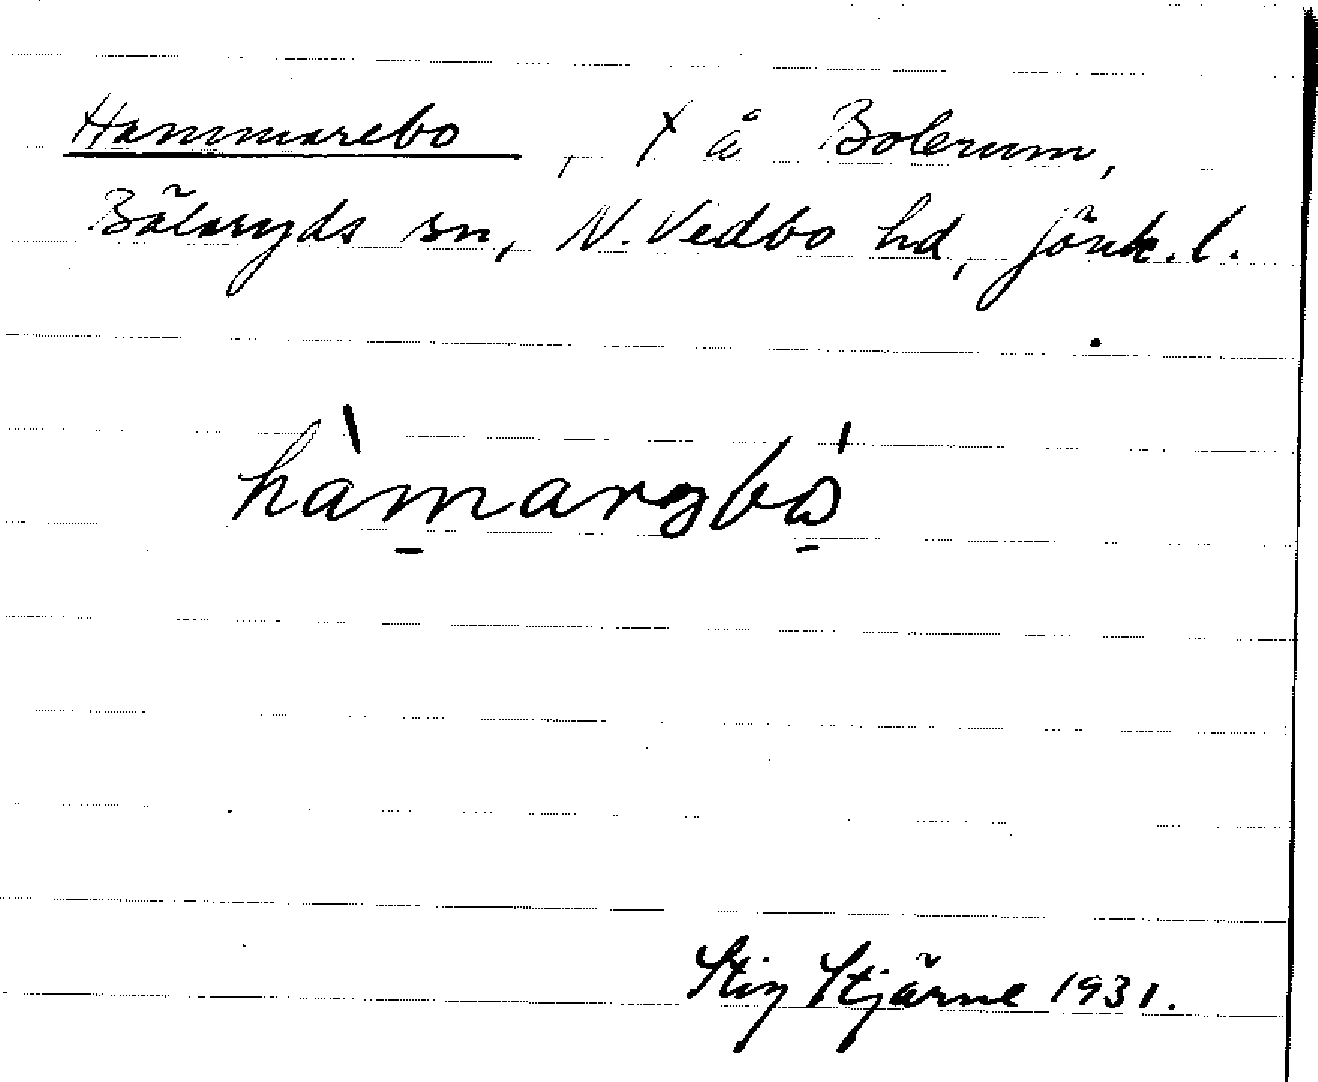 Hammarebo, x å Bolerum,
Bälaryds sn, N. Vedbo hd, Jönk. l.
Stig Stjärne 1931.